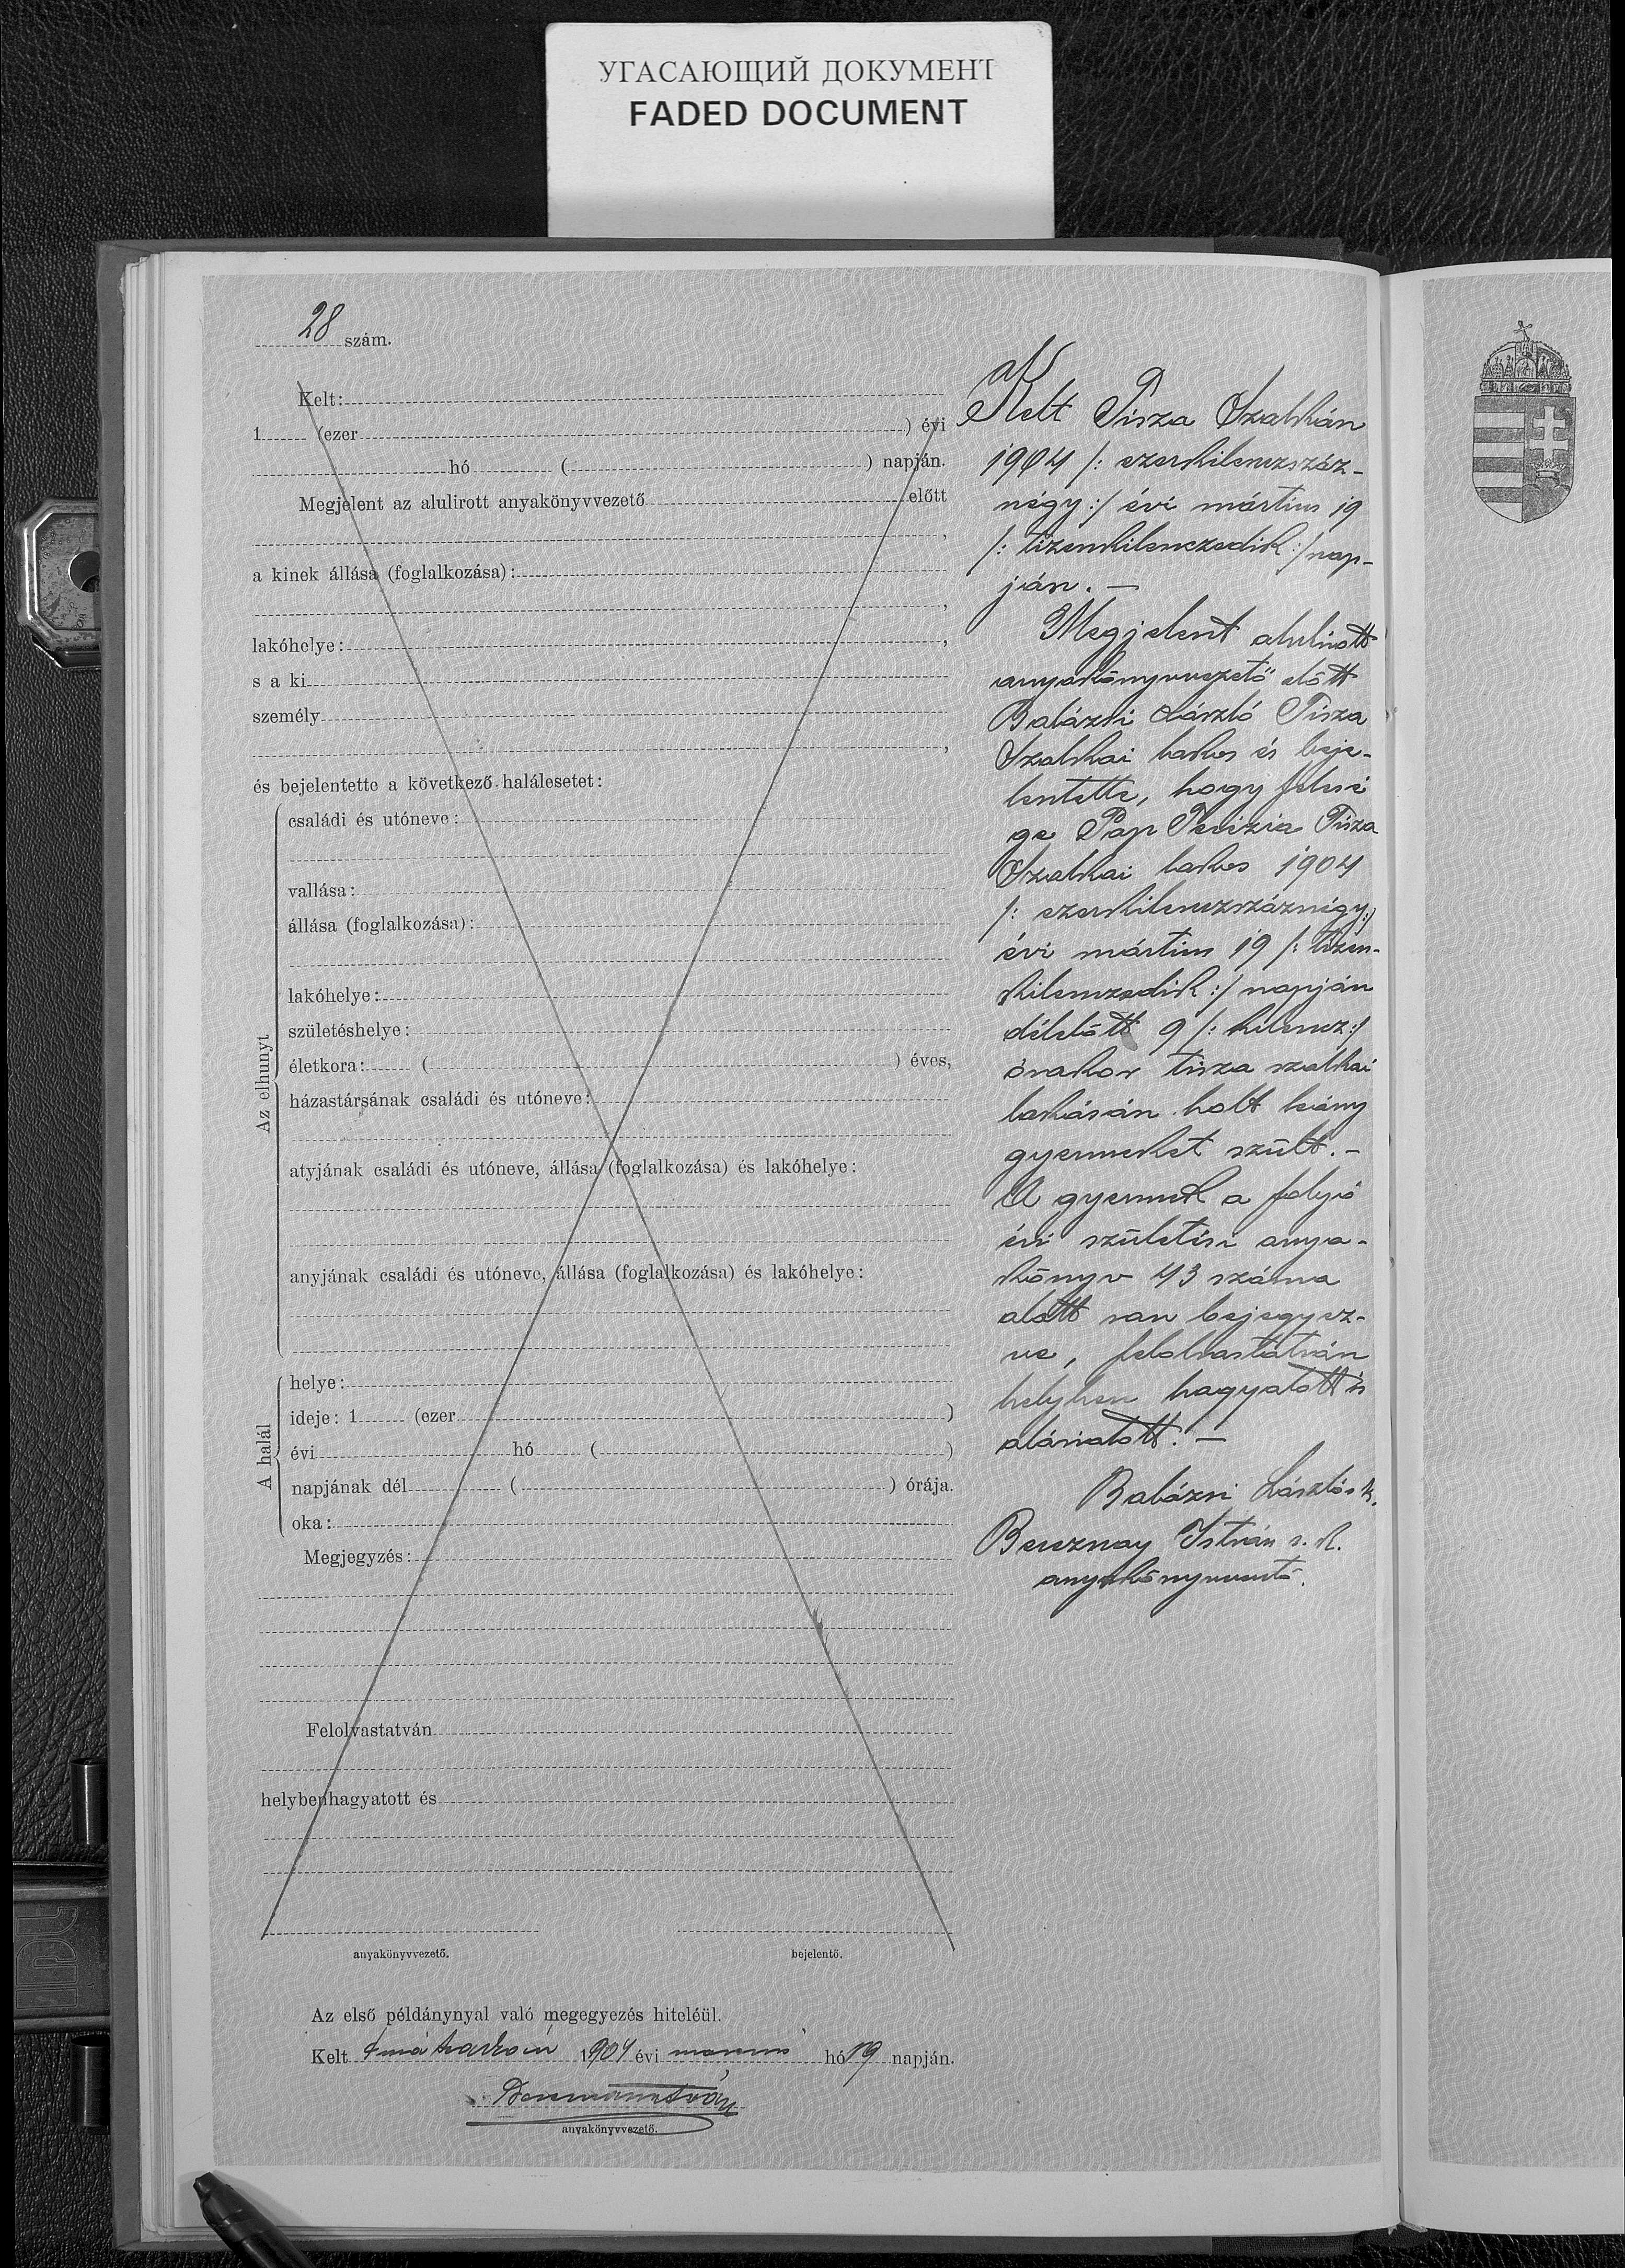 УГАСАЮЩИЙ ДОКУМЕНТ
FADED DOCUMENT
28 szám.
Kelt:
1 (ezer ) évi
hó ( ) napján.
Megjelent az alulirott anyakönyvvezető előtt
,
a kinek állása (foglalkozása):
,
lakóhelye: ,
s a ki
személy
,
és bejelentette a következő halálesetet:
Az elhunyt
családi és utóneve:
vallása:
állása (foglalkozása):
lakóhelye:
születéshelye:
életkora: ( ) éves,
házastársának családi és utóneve:
atyjának családi és utóneve, állása (foglalkozása) és lakóhelye:
anyjának családi és utóneve, állása (foglalkozása) és lakóhelye:
A halál
helye:
ideje: 1 (ezer )
évi hó ( )
napjának dél ( ) órája.
oka:
Megjegyzés:
Felolvastatván
helybenhagyatott és
anyakönyvvezető. bejelentő.
Kelt Tisza Szalkán
1904 /: ezerkilenczszáz-
négy :/ évi mártius 19
/: tizenkilenczedik :/ nap-
ján. —
Megjelent alulirott
anyakönyvvezető előtt
Balázsi László Tisza
Szalkai lakos és beje-
lentette, hogy felesé
ge Pap Terézia Tisza
Szalkai lakos 1904
/: ezerkilenczszáznégy :/
évi mártius 19 /: tizen-
kilenczedik :/ napján
délelőtt 9 /: kilencz :/
órakor tisza szalkai
lakásán holt leány
gyermeket szült. —
A gyermek a folyó
évi születési anya-
könyv 43 száma
alatt van bejegyez-
ve, felolvastatván
helyben hagyatott és
aláiratott. —
Balázsi László s. k.
Bereznay István s. k.
anyakönyvvezető.
Az első példánynyal való megegyezés hiteléül.
Kelt 1904 évi hó 19 napján.
anyakönyvvezető.